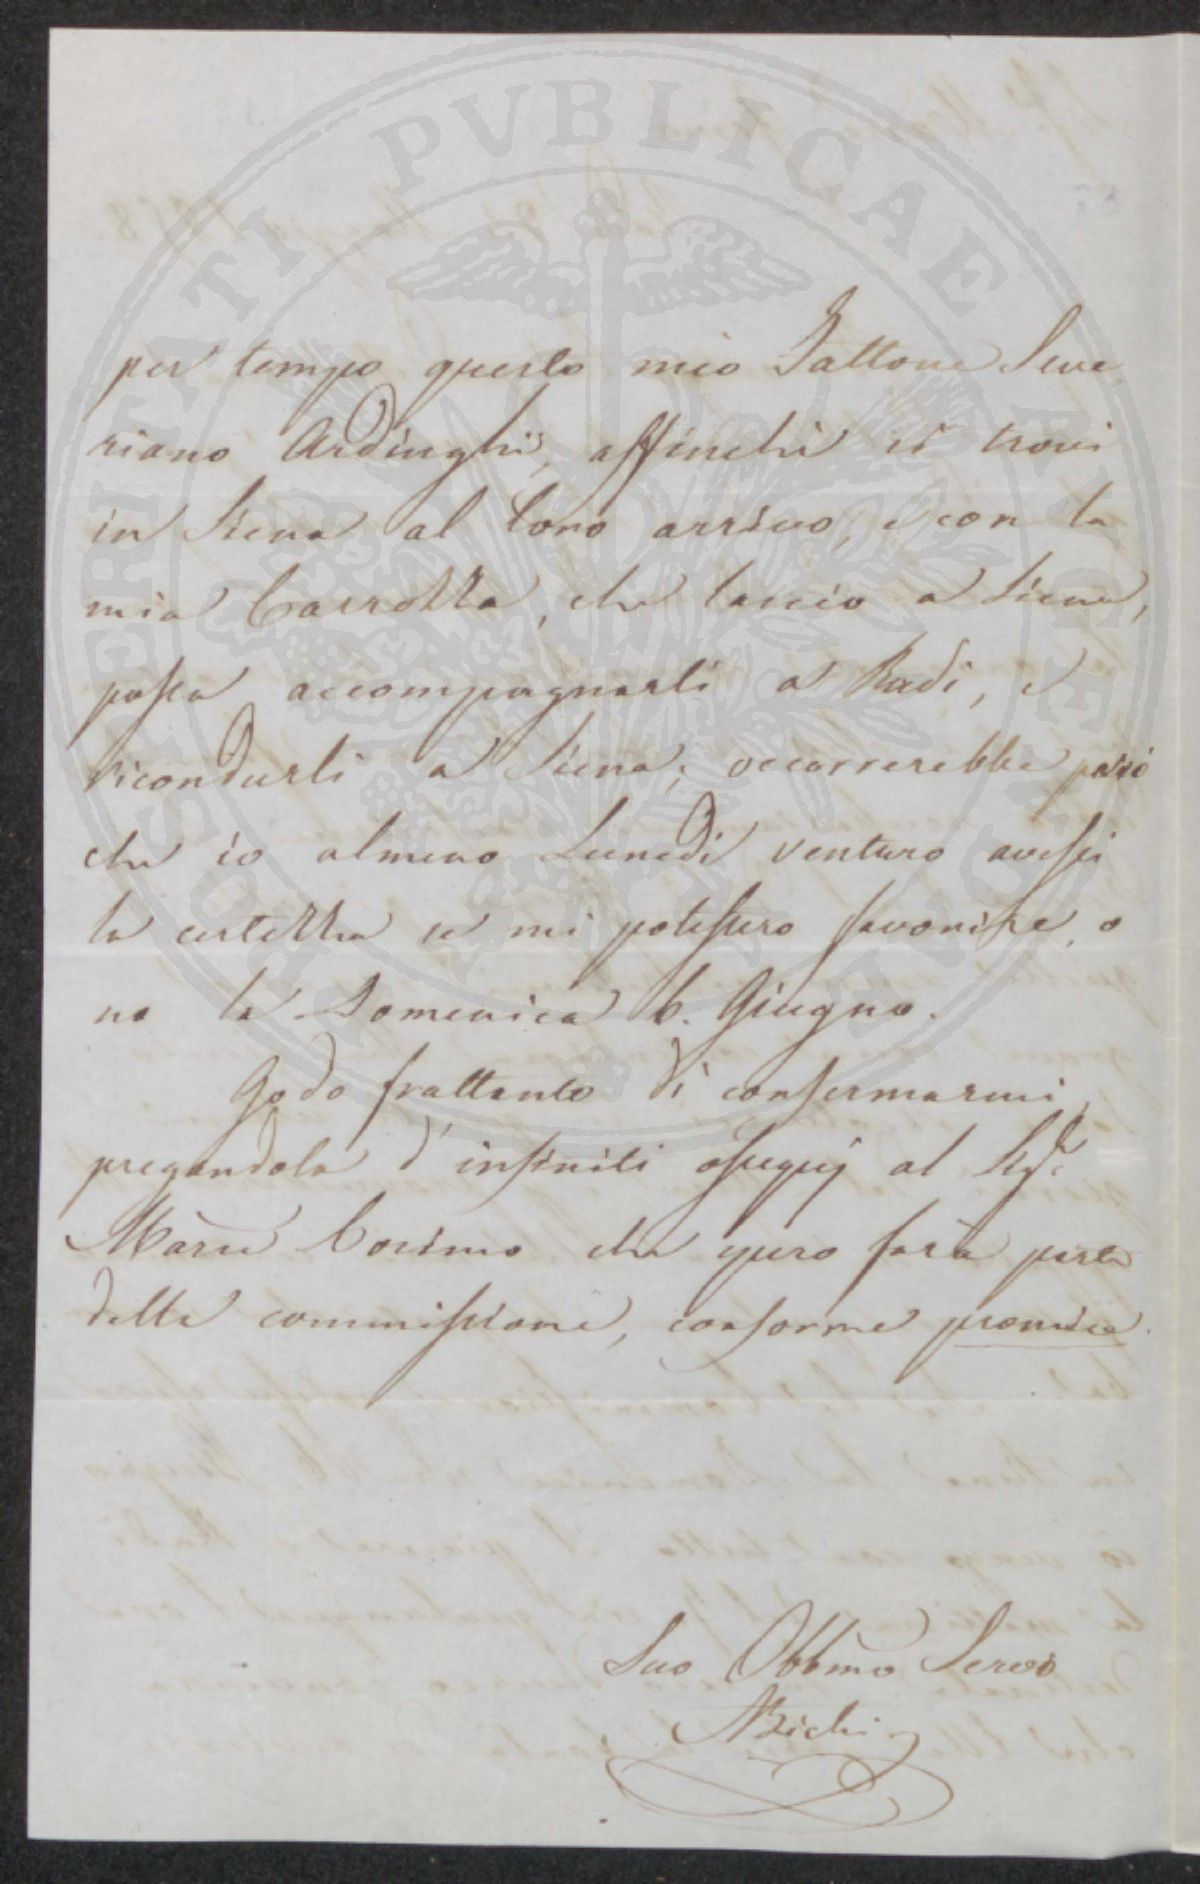 PROSPERITATI PVBLICAE AVGENDAE
per tempo questo mio Fattore Seve
riano Ardinghi, affinchè si trovi
in Siena al loro arrivo, e con la
mia Carrozza, che lascio a Siena,
possa accompagnarli a Radi, e
ricondurli a Siena; occorrerebbe però
che io almeno Lunedì venturo avessi
la certezza se mi potessero favorire, o
no la Domenica 6. Giugno.
Godo frattanto di confermarmi,
pregandola d'infiniti ossequj al Sigr.
March. Cosimo che spero farà parte
della commissione, conforme promise.
Suo Obbmo Servo
ABichi